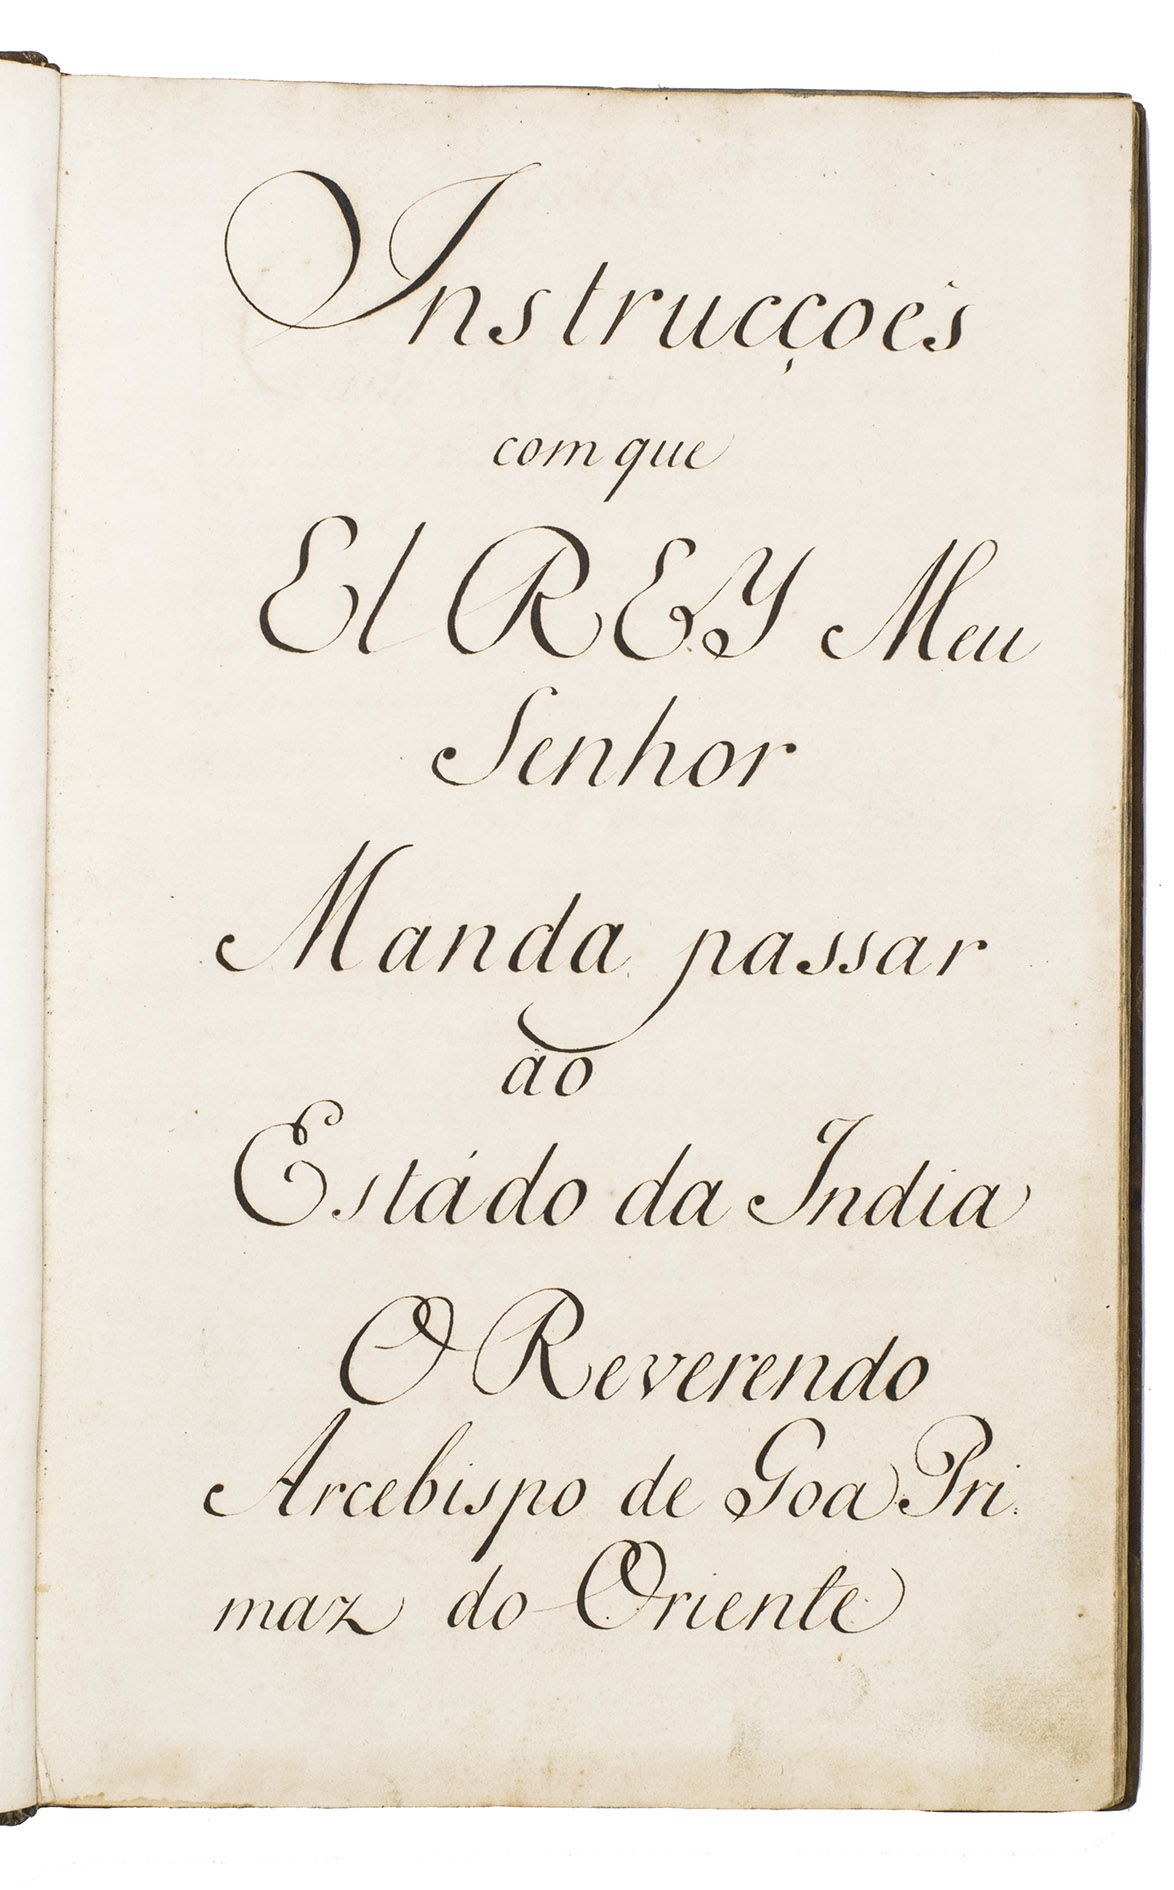 Instrucçoẽs
com que
El REY Meu
Senhor
Manda passar
ao
Estádo da India
O Reverendo
Arcebispo de Goa Pri
maz do Oriente